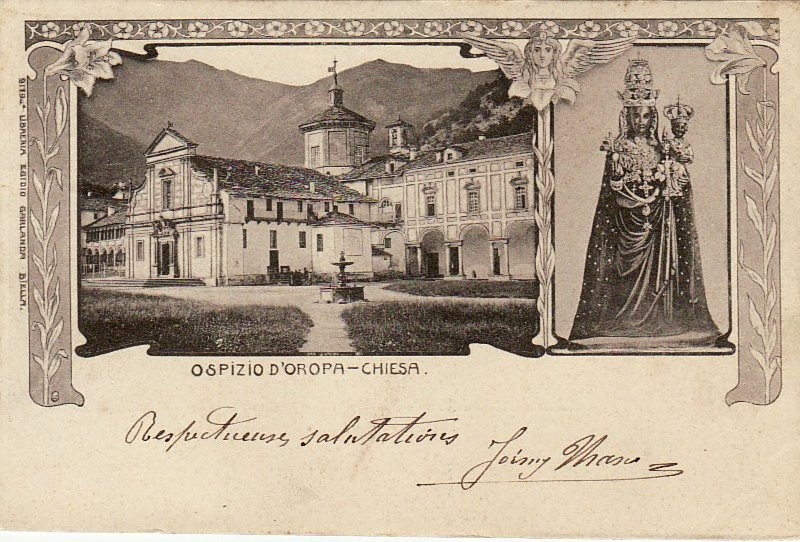 LIBRERIA EGIDIO GARLANDA BIELLA.
OSPIZIO D'OROPA-CHIESA.
Respectueuses salutations